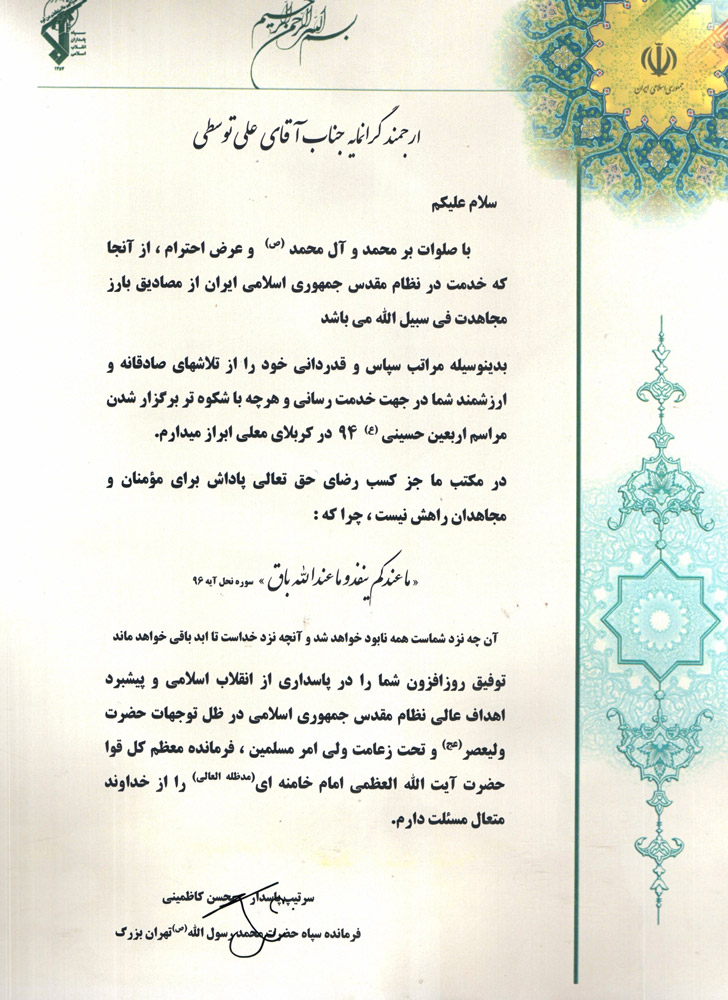 بسم الله الرحمن الرحیم
سپاه
پاسداران
انقلاب
اسلامی
جمهوری اسلامی ایران
ارجمند گرانمایه جناب آقای علی توسطی
سلام علیکم
با صلوات بر محمد و آل محمد (ص) و عرض احترام ، از آنجا
که خدمت در نظام مقدس جمهوری اسلامی ایران از مصادیق بارز
مجاهدت فی سبیل الله می باشد
بدینوسیله مراتب سپاس و قدردانی خود را از تلاشهای صادقانه و
ارزشمند شما در جهت خدمت رسانی و هرچه با شکوه تر برگزار شدن
مراسم اربعین حسینی (ع) ۹۴ در کربلای معلی ابراز میدارم.
در مکتب ما جز کسب رضای حق تعالی پاداش برای مؤمنان و
مجاهدان راهش نیست ، چرا که :
« ما عندکم ینفد و ما عندالله باق » سوره نحل آیه ۹۶
آن چه نزد شماست همه نابود خواهد شد و آنچه نزد خداست تا ابد باقی خواهد ماند
توفیق روزافزون شما را در پاسداری از انقلاب اسلامی و پیشبرد
اهداف عالی نظام مقدس جمهوری اسلامی در ظل توجهات حضرت
ولیعصر(عج) و تحت زعامت ولی امر مسلمین ، فرمانده معظم کل قوا
حضرت آیت الله العظمی امام خامنه ای(مدظله العالی) را از خداوند
متعال مسئلت دارم.
سرتیپ پاسدار محسن کاظمینی
فرمانده سپاه حضرت محمد رسول الله(ص) تهران بزرگ